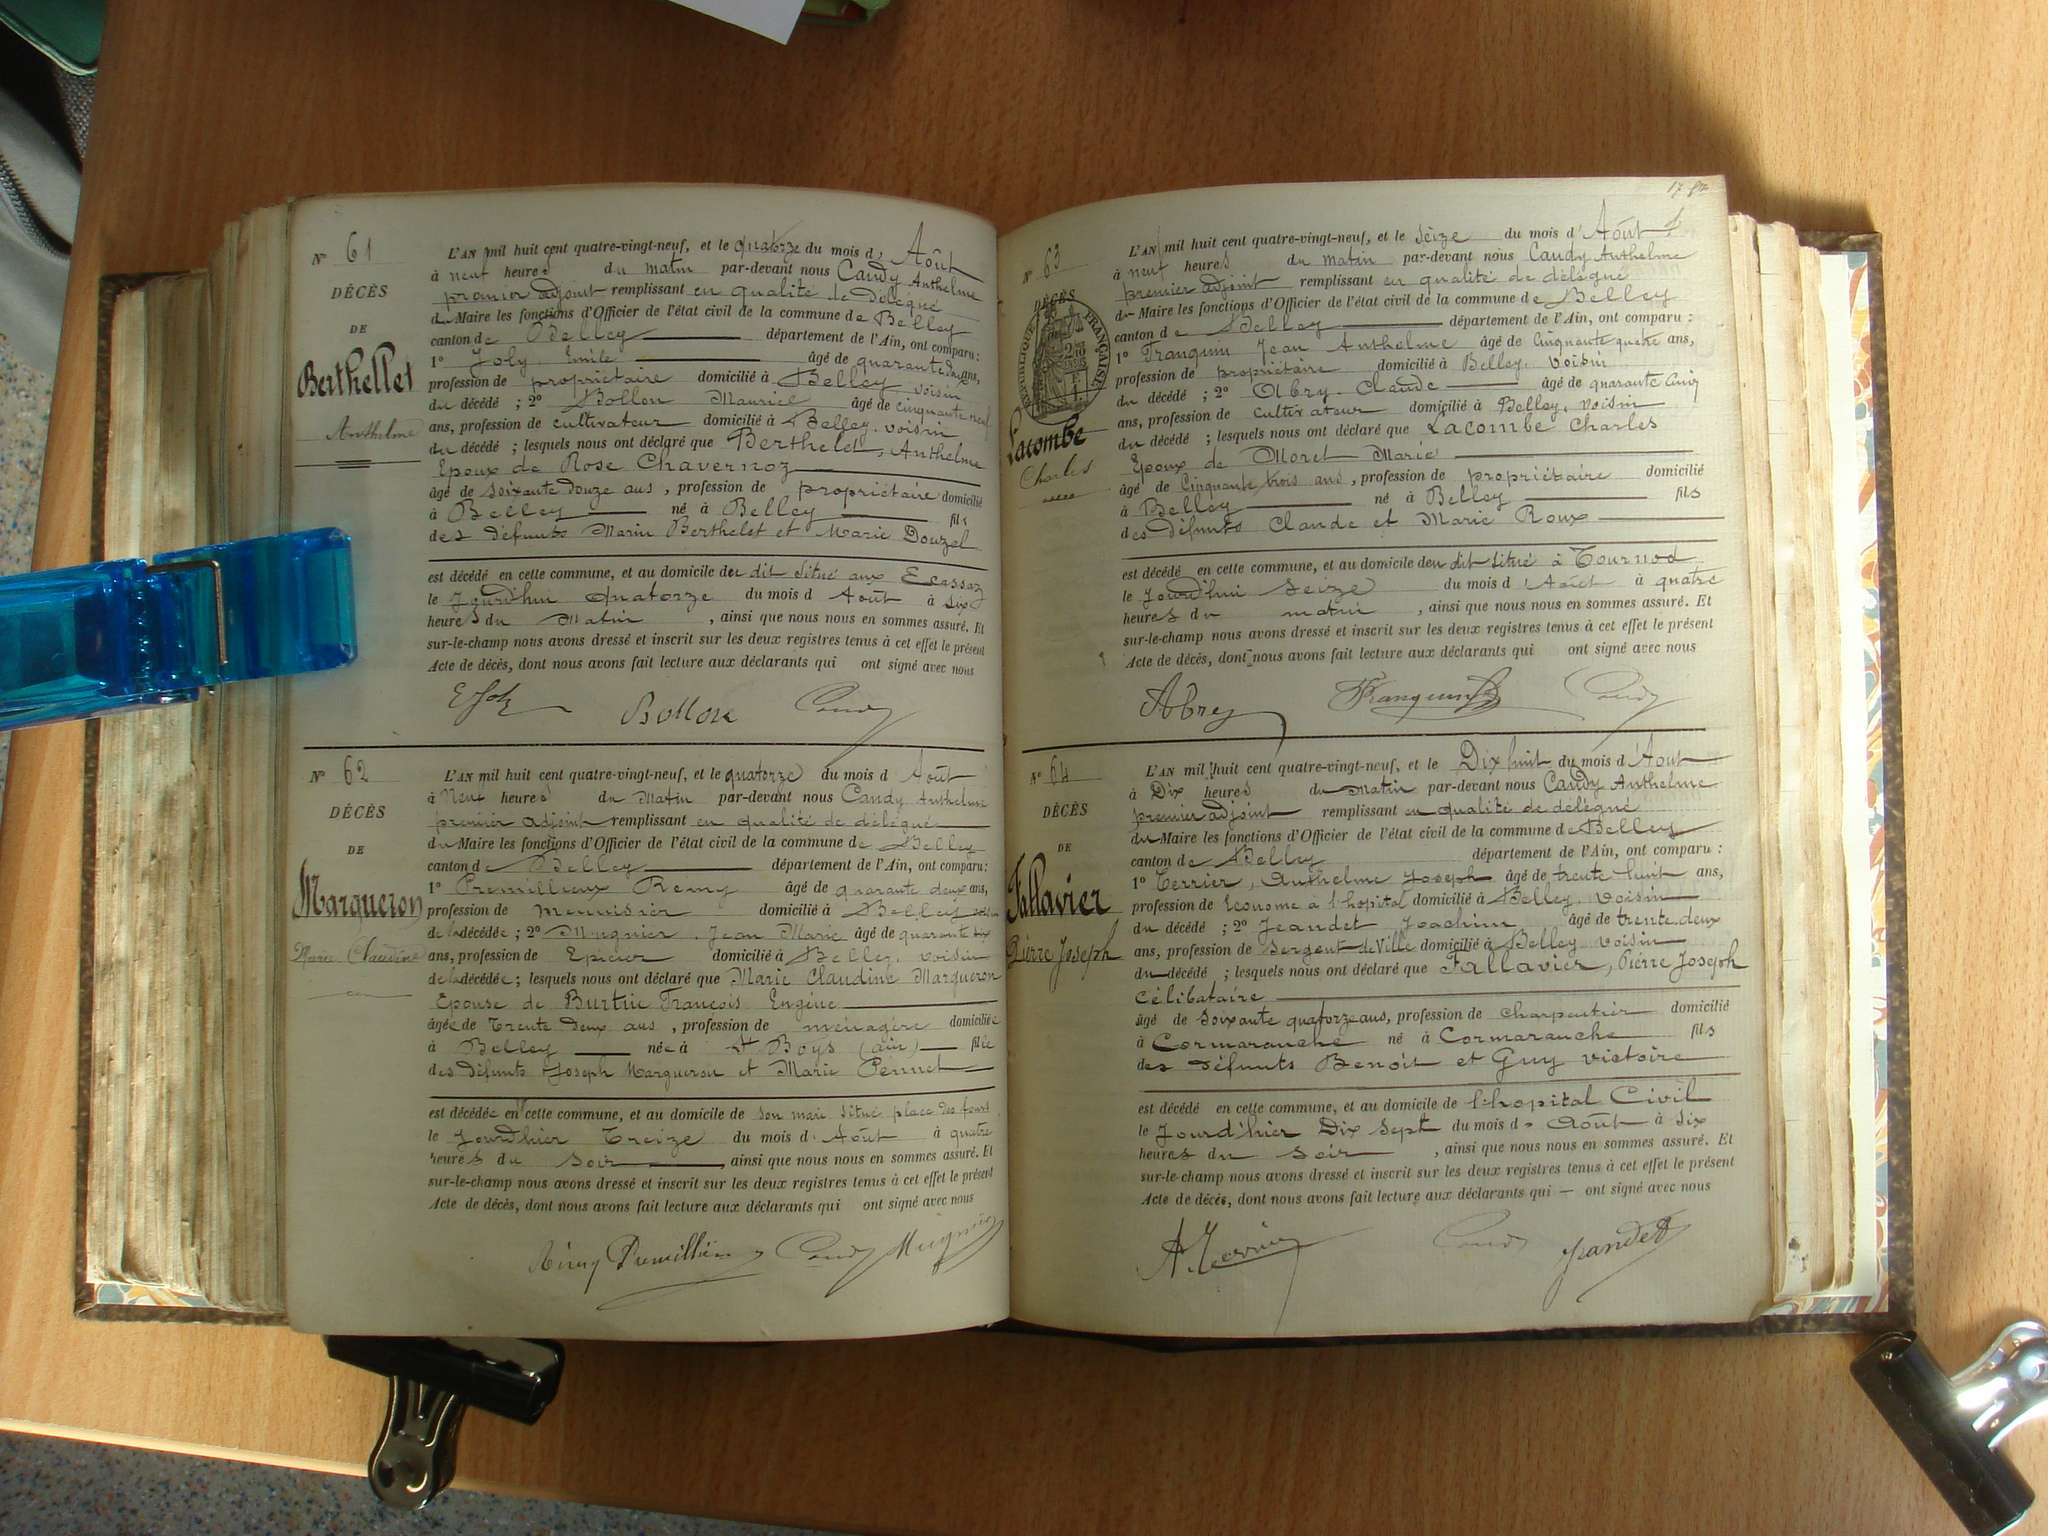 Nº 61
DÉCÈS
DE
Berthellet
Anthelme
L'AN mil huit cent quatre-vingt-neuf, et le quatorze du mois d' Août
à neuf heures du matin par-devant nous Candy Anthelme
premier adjoint remplissant en qualité de délégué
du Maire les fonctions d'Officier de l'état civil de la commune de Belley
canton de Belley département de l'Ain, ont comparu :
1º Joly Emile âgé de quarante deux ans,
profession de propriétaire domicilié à Belley voisin
du décédé ; 2º Bollon Maurice âgé de cinquante neuf
ans, profession de cultivateur domicilié à Belley, voisin
du décédé ; lesquels nous ont déclaré que Berthelet, Anthelme
Epoux de Rose Chavernoz
âgé de soixante douze ans, profession de propriétaire domicilié
à Belley né à Belley fils
des défunts Marin Berthelet et Marie Douzel
est décédé en cette commune, et au domicile du dit situé aux Ecassaz
le Jourd'hui quatorze du mois d' Août à six
heures du Matin, ainsi que nous nous en sommes assuré. Et
sur-le-champ nous avons dressé et inscrit sur les deux registres tenus à cet effet le présent
Acte de décès, dont nous avons fait lecture aux déclarants qui ont signé avec nous
E Joly Bollon Candy
Nº 62
DÉCÈS
DE
Marqueron
Marie Claudine
L'AN mil huit cent quatre-vingt-neuf, et le quatorze du mois d' Août
à Neuf heures du Matin par-devant nous Candy Anthelme
premier adjoint remplissant en qualité de délégué
du Maire les fonctions d'Officier de l'état civil de la commune de Belley
canton de Belley département de l'Ain, ont comparu :
1º Premillieux Remy âgé de quarante deux ans,
profession de menuisier domicilié à Belley voisin
de la décédée ; 2º Mugnier, Jean Marie âgé de quarante six
ans, profession de Epicier domicilié à Belley, voisin
de la décédée ; lesquels nous ont déclaré que Marie Claudine Marqueron
Epouse de François Eugène
âgée de Trente deux ans, profession de ménagère domiciliée
à Belley née à St Boys (ain) fille
des défunts Joseph Marqueron et Marie Pennet
est décédée en cette commune, et au domicile de son mari situé place des fours
le Jourd'hier Treize du mois d' Août à quatre
heures du soir, ainsi que nous nous en sommes assuré. Et
sur-le-champ nous avons dressé et inscrit sur les deux registres tenus à cet effet le présent
Acte de décès, dont nous avons fait lecture aux déclarants qui ont signé avec nous
Rémy Premillieu Candy Mugnier
Nº 63
DÉCÈS
RÉPUBLIQUE FRANÇAISE
Lacombe
Charles
L'AN mil huit cent quatre-vingt-neuf, et le seize du mois d' Août
à neuf heures du matin par-devant nous Candy Anthelme
premier adjoint remplissant en qualité de délégué
du Maire les fonctions d'Officier de l'état civil de la commune de Belley
canton de Belley département de l'Ain, ont comparu :
1º Franquin Jean Anthelme âgé de cinquante quatre ans,
profession de propriétaire domicilié à Belley, voisin
du décédé ; 2º Abry, Claude âgé de quarante cinq
ans, profession de cultivateur domicilié à Belley, voisin
du décédé ; lesquels nous ont déclaré que Lacombe Charles
Epoux de Moret Marie
âgé de Cinquante trois ans, profession de propriétaire domicilié
à Belley né à Belley fils
des défunts Claude et Marie Roux
est décédé en cette commune, et au domicile du dit situé à Tournod
le Jourd'hui Seize du mois d' Août à quatre
heures du matin, ainsi que nous nous en sommes assuré. Et
sur-le-champ nous avons dressé et inscrit sur les deux registres tenus à cet effet le présent
Acte de décès, dont nous avons fait lecture aux déclarants qui ont signé avec nous
Abry Franquin Candy
Nº 64
DÉCÈS
DE
Fallavier
Pierre Joseph
L'AN mil huit cent quatre-vingt-neuf, et le Dix huit du mois d' Août
à Dix heures du Matin par-devant nous Candy Anthelme
premier adjoint remplissant en qualité de délégué
du Maire les fonctions d'Officier de l'état civil de la commune de Belley
canton de Belley département de l'Ain, ont comparu :
1º Terrier, Anthelme Joseph âgé de trente huit ans,
profession de Econome à l'hopital domicilié à Belley, voisin
du décédé ; 2º Jeandet Joachim âgé de trente deux
ans, profession de Sergent de Ville domicilié à Belley voisin
du décédé ; lesquels nous ont déclaré que Fallavier, Pierre Joseph
Célibataire
âgé de soixante quatorze ans, profession de charpentier domicilié
à Cormaranche né à Cormaranche fils
des défunts Benoit et Guy victoire
est décédé en cette commune, et au domicile de l'hopital Civil
le Jourd'hier Dix sept du mois d' Août à six
heures du soir, ainsi que nous nous en sommes assuré. Et
sur-le-champ nous avons dressé et inscrit sur les deux registres tenus à cet effet le présent
Acte de décès, dont nous avons fait lecture aux déclarants qui — ont signé avec nous
A. Terrier Candy Jeandet